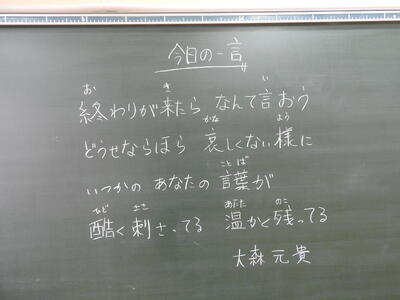 今日の一言
終わりが来たら なんて言おう
どうせならほら 哀しくない様に
いつかの あなたの 言葉が
酷く 刺さってる 温かと残ってる
大森元貴